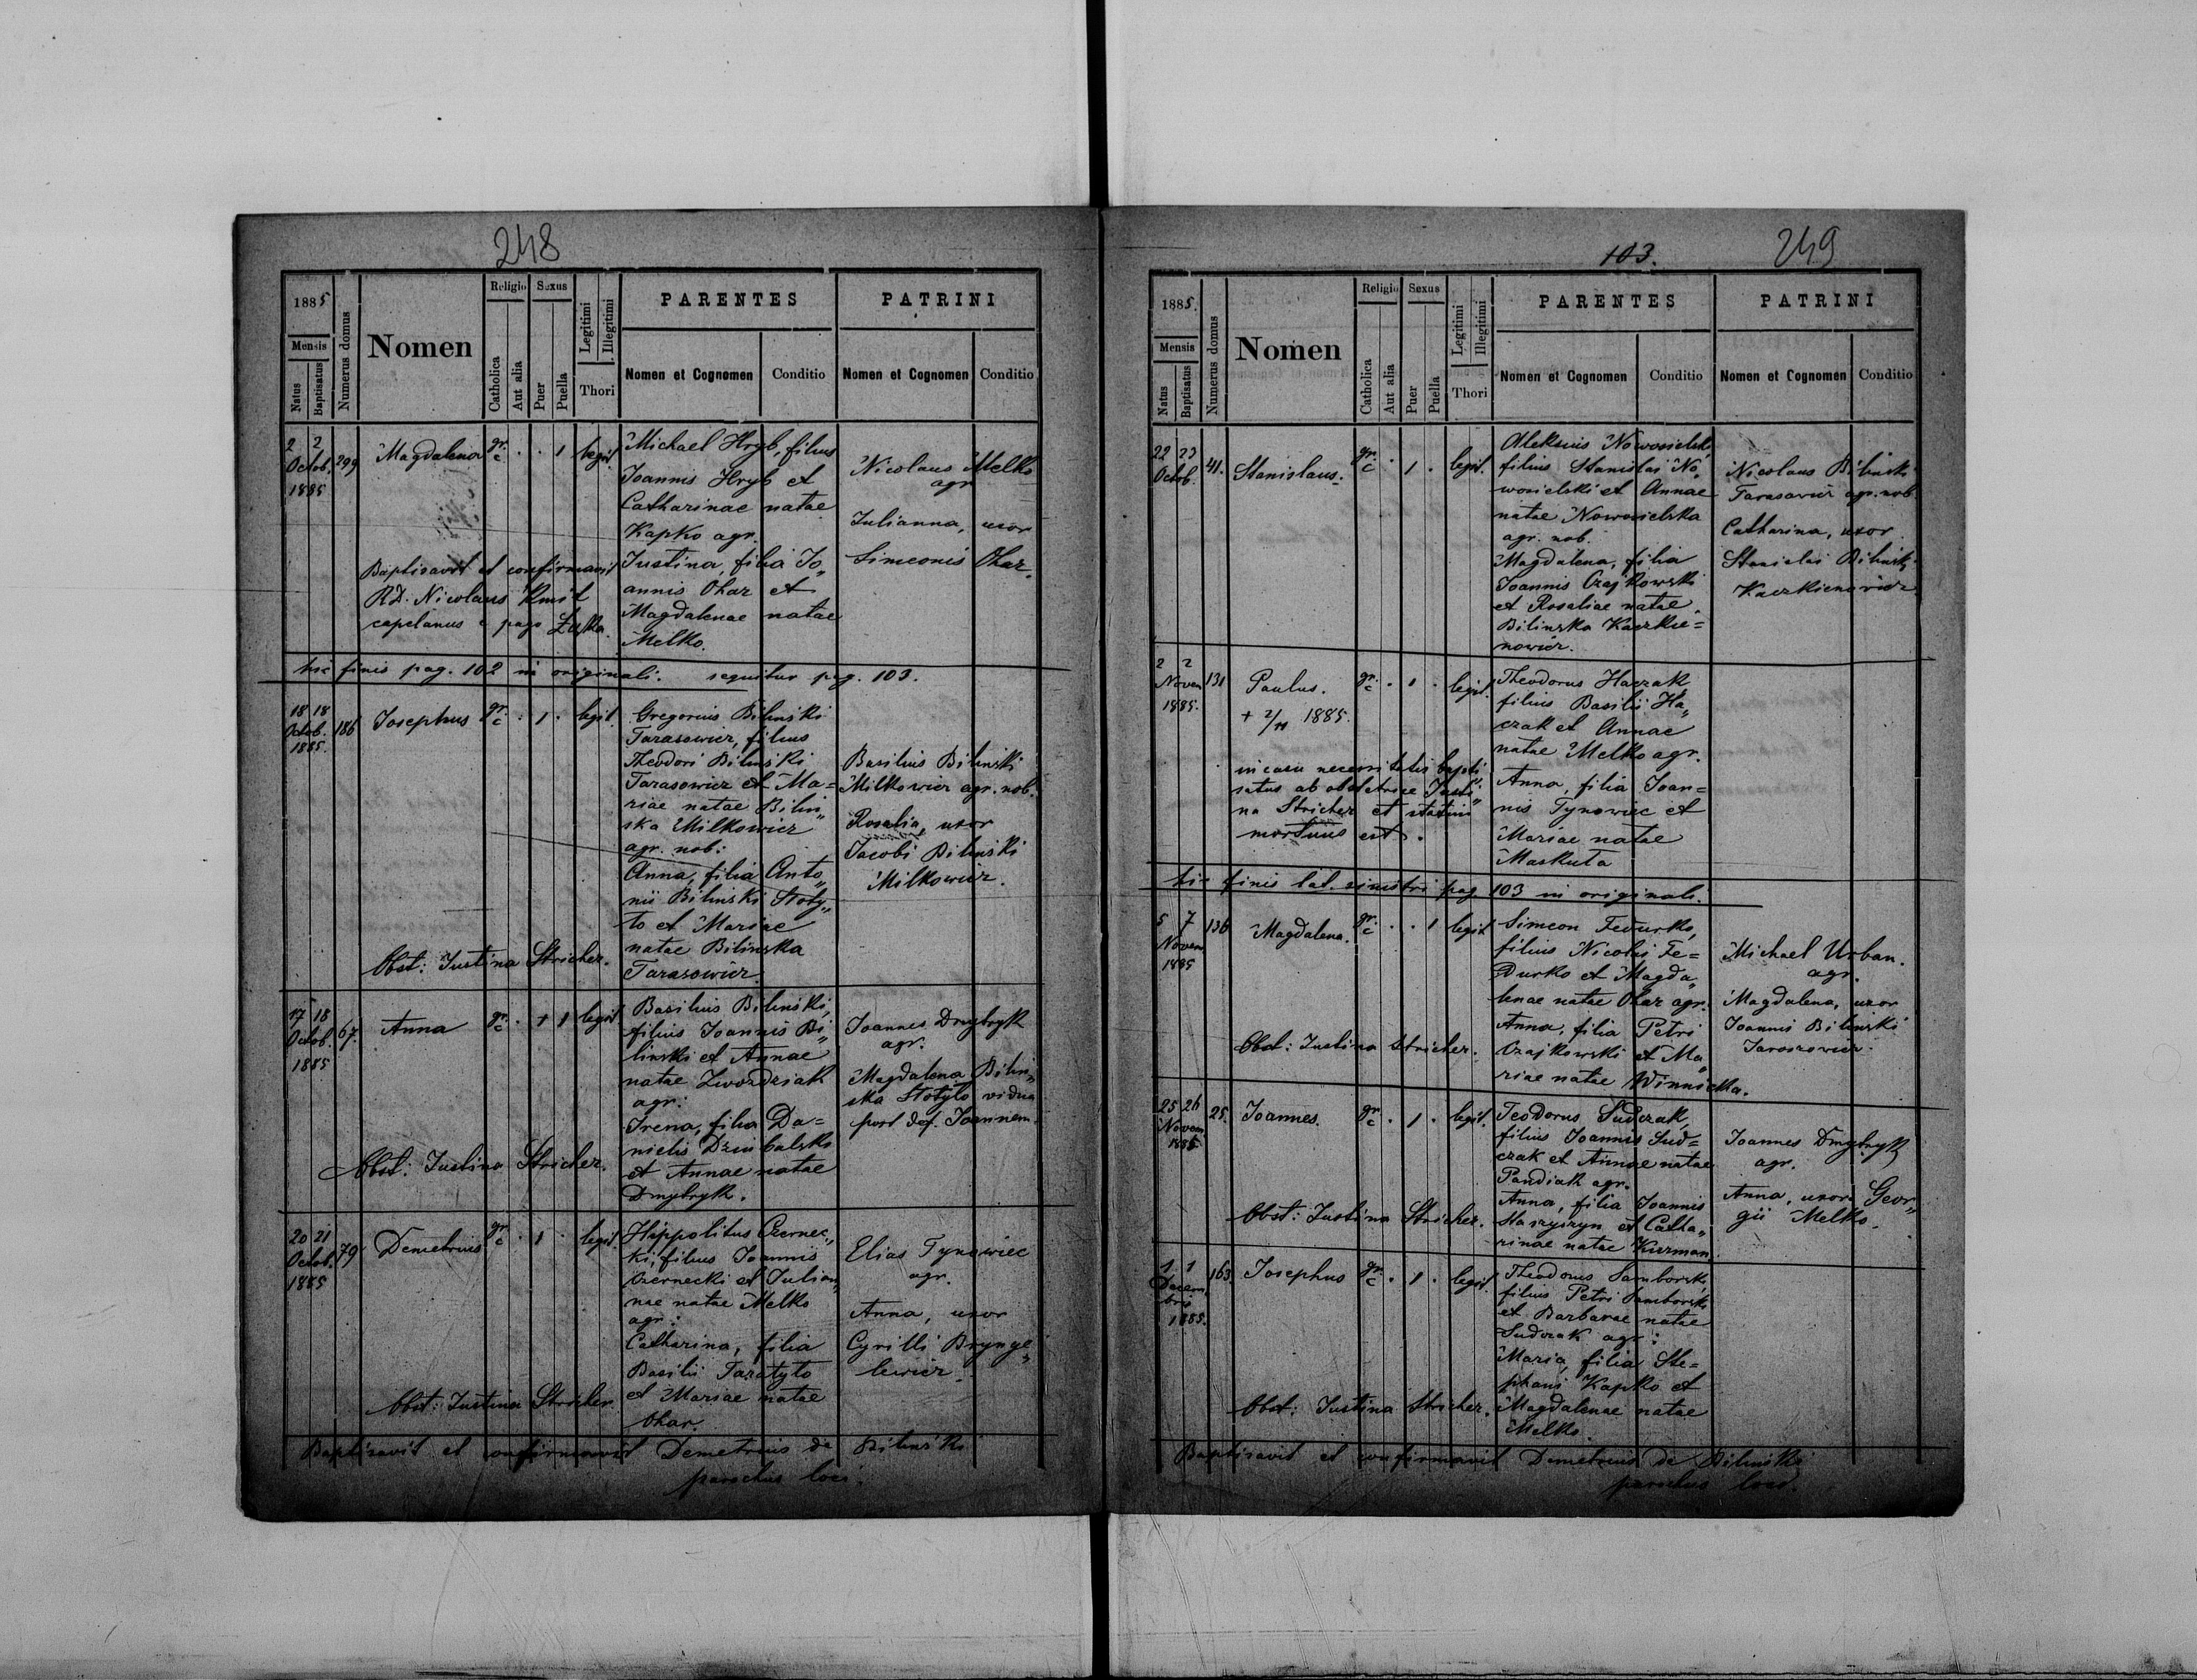 248
1885
Mensis
Natus
Baptisatus
Numerus domus
Nomen
Religio
Catholica
Aut alia
Sexus
Puer
Puella
Legitimi
Illegitimi
Thori
PARENTES
Nomen et Cognomen
Conditio
PATRINI
Nomen et Cognomen
Conditio
2 2
Octob.
1885
299
Magdalena
gr. c
. . 1
legit.
Michael Hryb, filius
Joannis Hryb et
Catharinae natae
Kapko agr.
Justina, filia Jo„
annis Ohar et
Magdalenae natae
Melko.
Nicolaus Melko
agr.
Julianna, uxor
Simeonis Ohar.
Baptisavit et confirmavit
RD. Nicolaus Kmit
capelanus e pago Łużka.
hic finis pag. 102 in originali. sequitur pag. 103.
18 18
Octob.
1885.
186
Josephus
gr. c
. 1 .
legit.
Gregorius Bilinski
Tarasowicz, filius
Theodori Bilinski
Tarasowicz et Ma=
riae natae Bilin„
ska Milkowicz
agr. nob:
Anna, filia Anto„
nii Bilinski Stoty„
to et Mariae
natae Bilinska
Tarasowicz
Basilius Bilinski
Milkowicz agr. nob.
Rosalia, uxor
Jacobi Bilinski
Milkowicz.
Obst: Justina Stricher.
17 18
Octob.
1885
67.
Anna
gr. c
. + 1
legit
Basilius Bilinski,
filius Joannis Bi„
linski et Annae
natae Zwozdziak
agr:
Irena, filia Da=
nielis Dziubalski
et Annae natae
Dmytryk.
Joannes Dmytryk
agr.
Magdalena Bilin„
ska Stotyto vidua
post def. Joannem.
Obst: Justina Stricher.
20 21
Octob.
1885
79
Demetrius
gr. c
. 1 .
legit.
Hippolitus Czernec„
ki, filius Joannis
Czernecki et Julian„
nae natae Melko
agr:
Catharina, filia
Basilii Taratyto
et Mariae natae
Ohar.
Elias Tynowiec
agr.
Anna, uxor
Cyrilli Brynge„
lewicz.
Obst: Justina Stricher.
Baptisavit et confirmavit Demetrius de Bilinski
parochus loci.
103.
249
1885.
Mensis
Natus
Baptisatus
Numerus domus
Nomen
Religio
Catholica
Aut alia
Sexus
Puer
Puella
Legitimi
Illegitimi
Thori
PARENTES
Nomen et Cognomen
Conditio
PATRINI
Nomen et Cognomen
Conditio
22 23
Octob.
41.
Stanislaus.
gr. c
. 1 .
legit.
Aleksius Nowosielski
filius Stanislai No„
wosielski et Annae
natae Nowosielska
agr. nob.
Magdalena, filia
Joannis Czajkowski
et Rosaliae natae
Bilinska Kaczkie=
nowicz.
Nicolaus Bilinski
Tarasowicz agr. nob.
Catharina, uxor
Stanislai Bilinski
Kaczkienowicz
2 2
Novem
1885.
131
Paulus.
+ 2/11 1885.
gr. c
. 1 .
legit.
Theodorus Haczak
filius Basilii Ha„
czak et Annae
natae Melko agr.
Anna, filia Joan=
nis Tynowiec et
Mariae natae
Maskuta
in casu necessitatis bapti„
satus ab obstetrice Justi„
na Stricher et statim
mortuus est.
hic finis lat. sinistri pag. 103 in originali.
5 7
Novem
1885
136
Magdalena.
gr. c
. . 1
legit
Simeon Fedurko,
filius Nicolai Fe=
durko et Magda„
lenae natae Ohar agr.
Anna, filia Petri
Czajkowski et Ma„
riae natae Winnicka.
Michael Urban.
agr.
Magdalena, uxor
Joannis Bilinski
Jaroszowicz.
Obst: Justina Stricher.
25 26
Novem
1885
25.
Joannes.
gr. c
. 1 .
legit.
Teodorus Sudczak,
filius Joannis Sud=
czak et Annae natae
Pandiak agr.
Anna, filia Joannis
Staszyszyn et Catha„
rinae natae Kurman.
Joannes Dmytryk
agr.
Anna, uxor Geor„
gii Melko.
Obst: Justina Stricher.
1 1
Decem„
bris
1885.
163
Josephus
gr. c
. 1 .
legit.
Theodorus Samborski,
filius Petri Samborski
et Barbarae natae
Sudczak agr:
Maria, filia Ste=
phani Kapko et
Magdalenae natae
Melko.
Obst: Justina Stricher.
Baptisavit et confirmavit Demetrius de Bilinski
parochus loci.